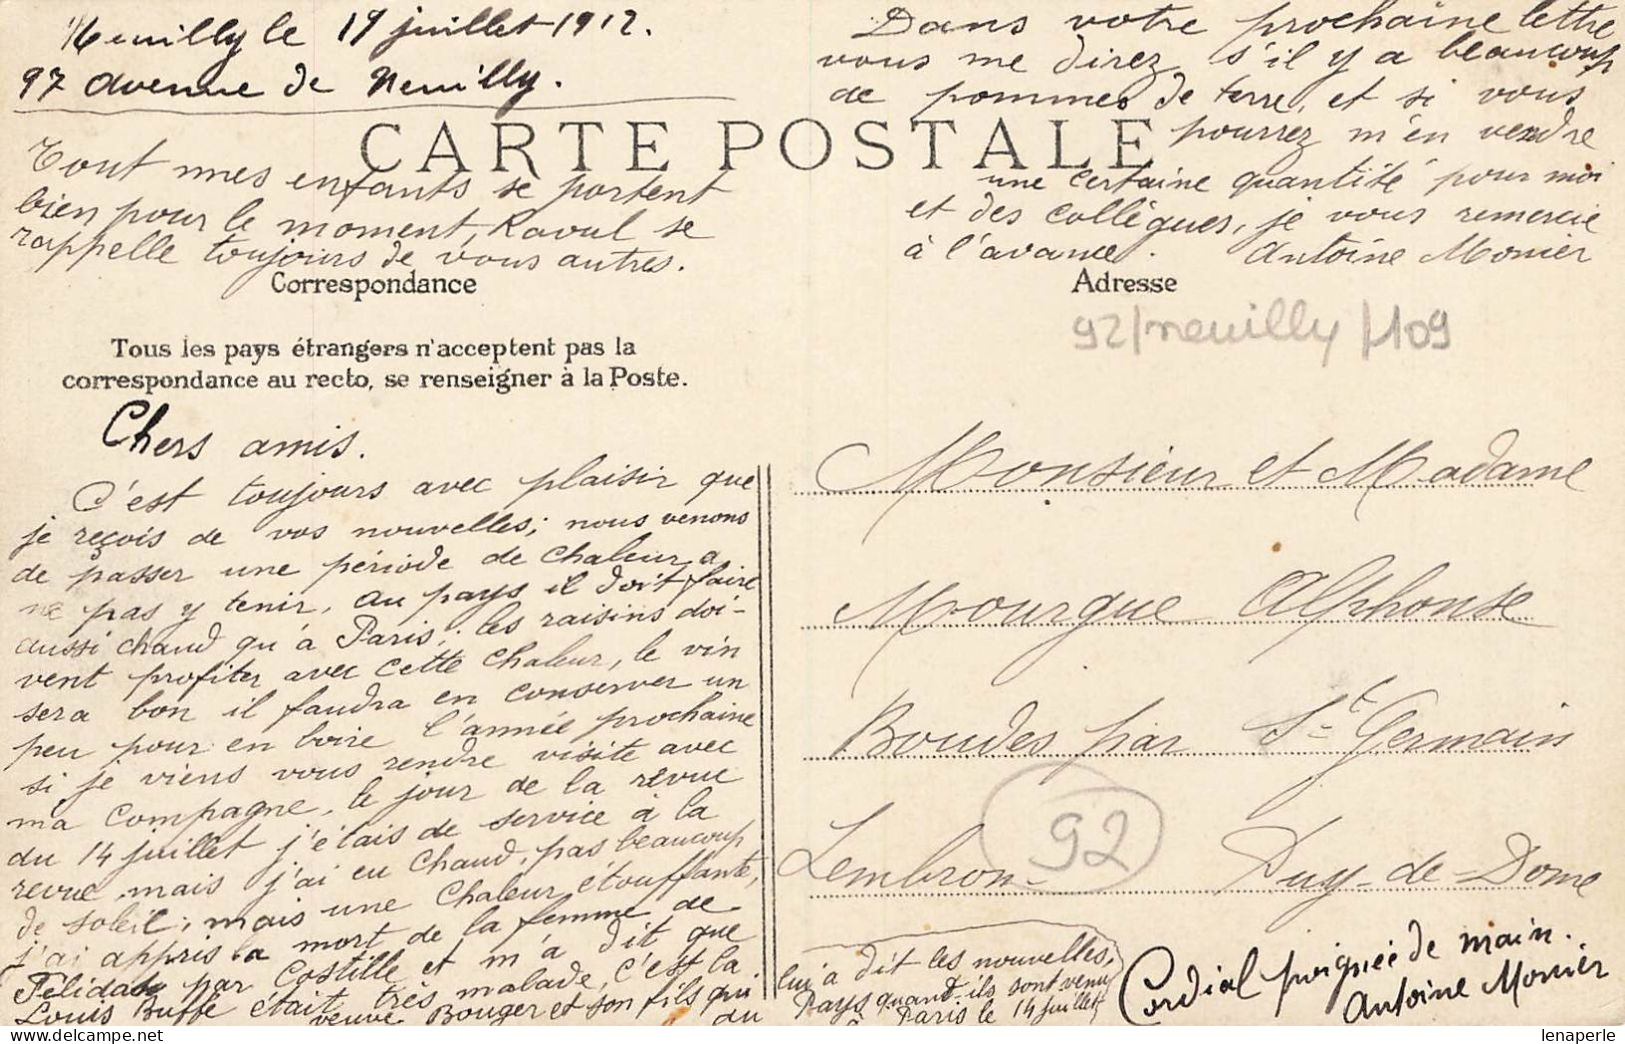 Neuilly le 19 juillet 1912.
97 avenue de Neuilly.
CARTE POSTALE
Tout mes enfants se portent
bien pour le moment, Raoul se
rappelle toujours de vous autres.
Correspondance
Tous les pays étrangers n'acceptent pas la
correspondance au recto, se renseigner à la Poste.
Chers amis.
C'est toujours avec plaisir que
je reçois de vos nouvelles; nous venons
de passer une période de chaleur a
ne pas y tenir, au pays il doit faire
aussi chaud qu'à Paris; les raisins doi-
vent profiter avec cette chaleur, le vin
sera bon il faudra en conserver un
peu pour en boire l'année prochaine
si je viens vous rendre visite avec
ma compagne, le jour de la revue
du 14 juillet j'étais de service à la
revue mais j'ai eu chaud, pas beaucoup
de soleil; mais une chaleur étouffante,
j'ai appris la mort de la femme de
Félidas par Costille et m'a dit que
Louis Buffe était très malade, c'est la
veuve Bouger et son fils qui
lui a dit les nouvelles, du
Pays quand ils sont venu
à Paris le 14 juillet
Dans votre prochaine lettre
vous me direz s'il y a beaucoup
de pommes de terre, et si vous
pourrez m'en vendre
une certaine quantité pour moi
et des collègues, je vous remercie
à l'avance. Antoine Monier
Adresse
92/neuilly/109
Monsieur et Madame
Mourgue Alphonse
Boudes par St Germain
Lembron Puy-de-Dome
92
Cordial poignée de main.
Antoine Monier
lenaperle